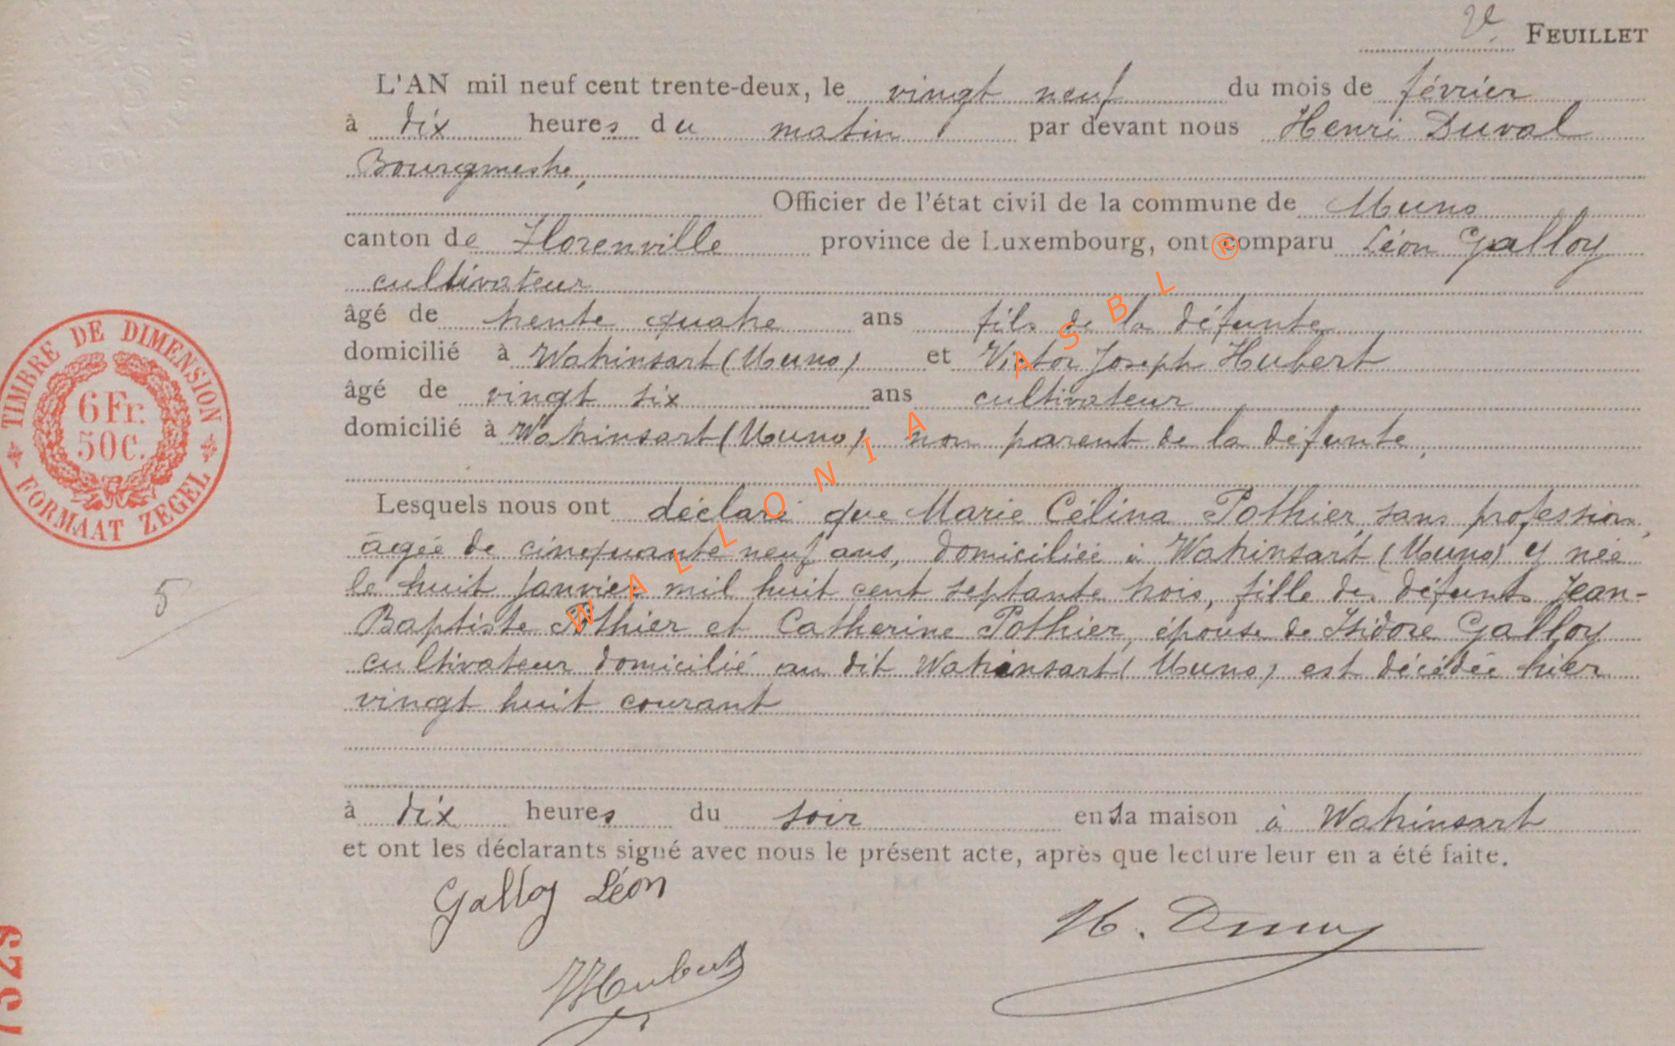 Ve FEUILLET
L'AN mil neuf cent trente-deux, le vingt neuf du mois de février
à dix heures du matin par devant nous Henri Duval
Bourgmestre,
Officier de l'état civil de la commune de Muno
canton de Florenville province de Luxembourg, ont comparu Léon Galloy
cultivateur
âgé de trente quatre ans fils de la défunte
domicilié à Watrinsart (Muno) et Victor Joseph Hubert
âgé de vingt six ans cultivateur
domicilié à Watrinsart (Muno) non parent de la défunte,
Lesquels nous ont déclaré que Marie Célina Pothier, sans profession,
âgée de cinquante neuf ans, domiciliée à Watrinsart (Muno) y née
le huit janvier mil huit cent septante trois, fille des défunts Jean-
Baptiste Pothier et Catherine Pothier, épouse de Isidore Galloy
cultivateur domicilié au dit Watrinsart (Muno) est décédée hier
vingt huit courant
à dix heures du soir en sa maison à Watrinsart
et ont les déclarants signé avec nous le présent acte, après que lecture leur en a été faite.
Galloy Léon
H. Duval
VJHubert
TIMBRE DE DIMENSION
6 Fr.
50 C.
FORMAAT ZEGEL
5
WALLONIA ASBL ®